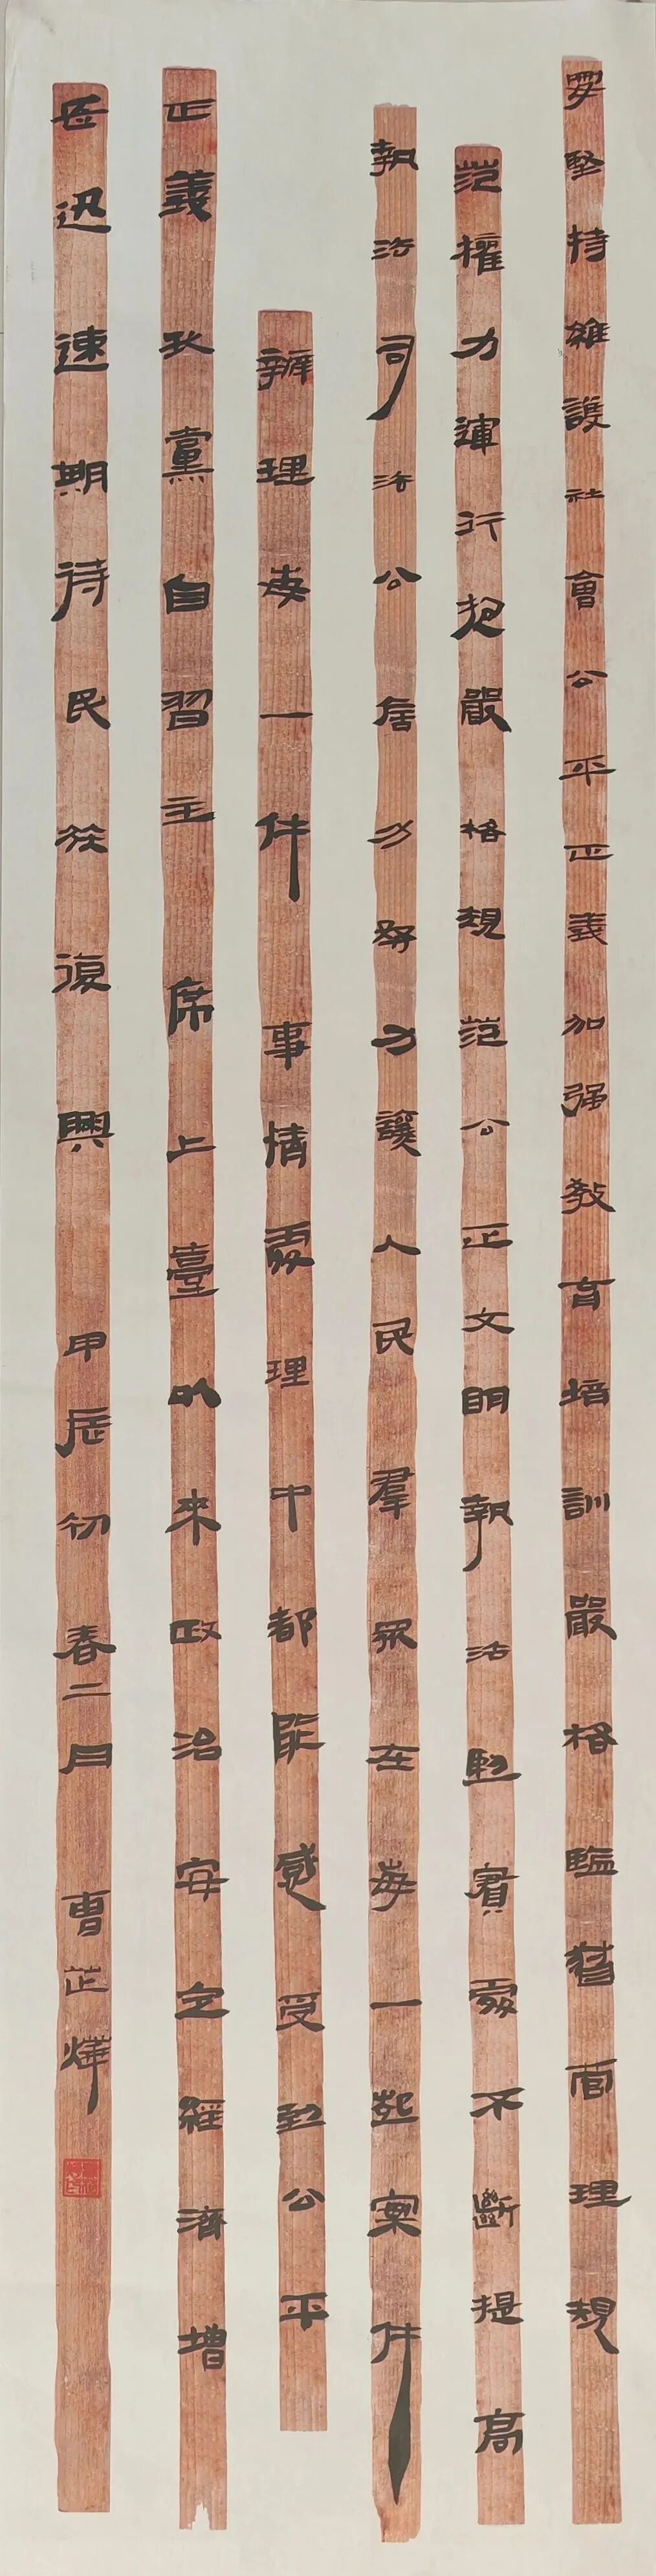 要堅持維護社會公平正義加强教育培訓嚴格監督管理規
范權力運行把嚴格規范公正文明執法監賓處不斷提高
執法司法公信力努力讓人民羣眾在每一起案件
辦理每一件事情處理中都能感受到公平
正義 黨自習主席上臺以來政治安定經濟增
長迅速期待民族復興
甲辰初春二月 曹芷燁